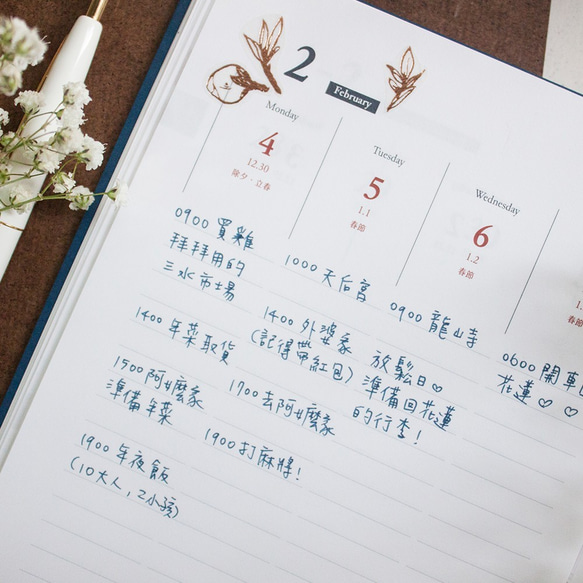 2
February
Monday
4
12.30
除夕．立春
0900 買雞
拜拜用的
三水市場
1400 年菜取貨
1500 阿嬤家
準備年菜
1900 年夜飯
(10大人，2小孩)
Tuesday
5
1.1
春節
1000 天后宮
1400 外婆家
(記得帶紅包)
1700 去阿嬤家
1900 打麻將！
Wednesday
6
1.2
春節
0900 龍山寺
放鬆日♡
準備回花蓮
的行李！
0600 開車
花蓮♡♡